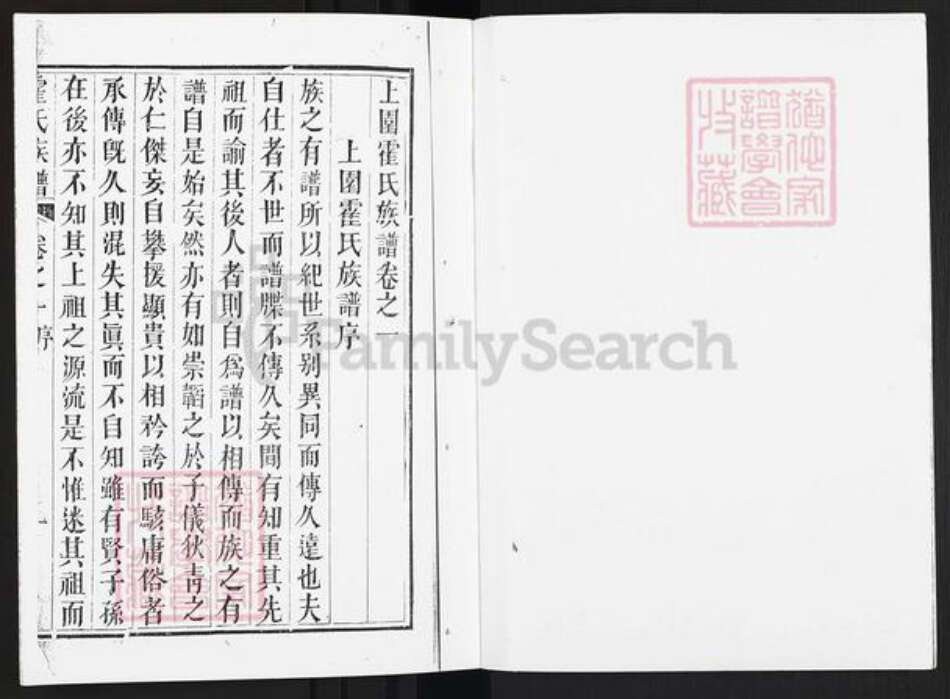 上園霍氏族譜卷之一
上園霍氏族譜序
族之有譜所以紀世系别異同而傳久遠也夫
自仕者不世而譜牒不傳久矣間有知重其先
祖而諭其後人者則自爲譜以相傳而族之有
譜自是始矣然亦有如崇韜之於子儀狄青之
於仁傑妄自攀援顯貴以相矜誇而駭庸俗者
承傳旣久則混失其眞而不自知雖有賢子孫
在後亦不知其上祖之源流是不惟迷其祖而
霍氏族譜 卷之一 序 一
猶他家譜學會收藏
FamilySearch